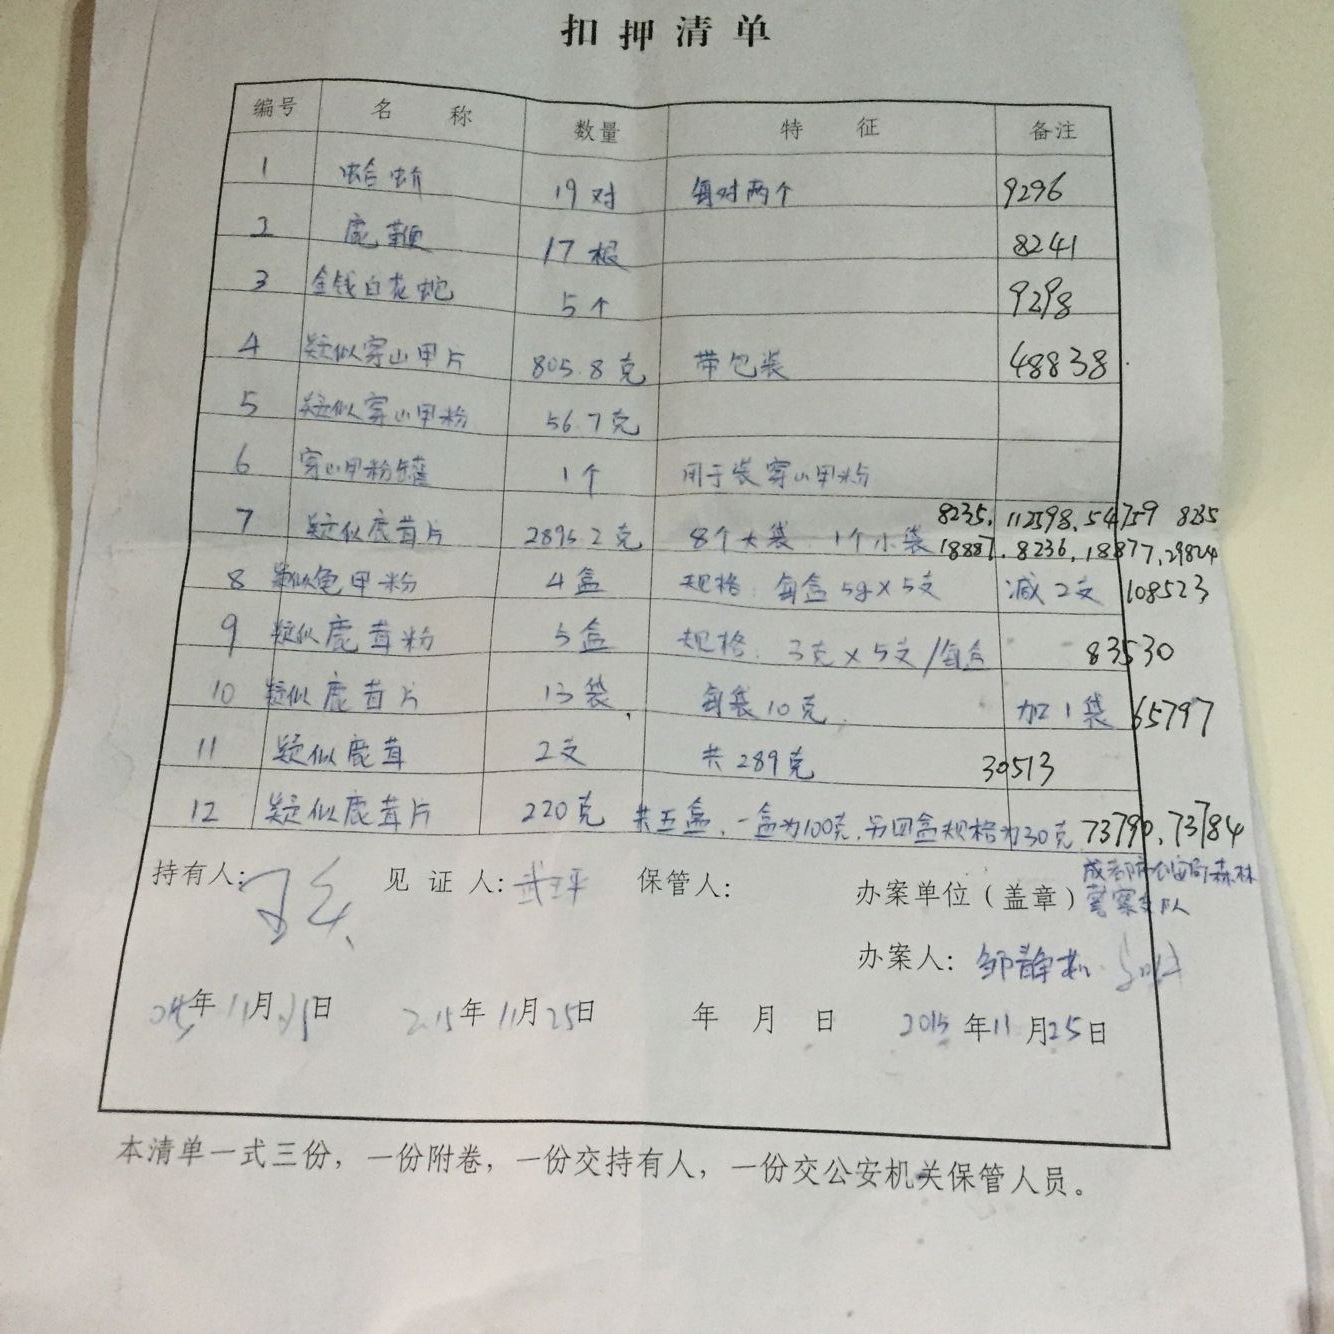 扣押清单
编号 名称 数量 特征 备注
1 蛤蚧 19对 每对两个 9296
2 鹿鞭 17根 8241
3 金钱白花蛇 5个 9298
4 疑似穿山甲片 805.8克 带包装 48838
5 疑似穿山甲粉 56.7克
6 穿山甲粉罐 1个 用于装穿山甲粉
7 疑似鹿茸片 2895.2克 8个大袋 1个小袋 8235, 112598, 54759 8235
18887, 8236, 18877, 29824
8 疑似龟甲粉 4盒 规格:每盒5g×5支 减2支 108523
9 疑似鹿茸粉 5盒 规格:3克×5支/每盒 83530
10 疑似鹿茸片 13袋 每袋10克 加1袋 65797
11 疑似鹿茸 2支 共289克 30513
12 疑似鹿茸片 220克 共五盒,一盒为100克,另四盒规格为30克 73790, 73784
持有人: 见证人: 武平 保管人: 办案单位(盖章) 成都市公安局森林
警察支队
办案人: 邹静
年11月 日 2015年11月25日 年 月 日 2015年11月25日
本清单一式三份,一份附卷,一份交持有人,一份交公安机关保管人员。